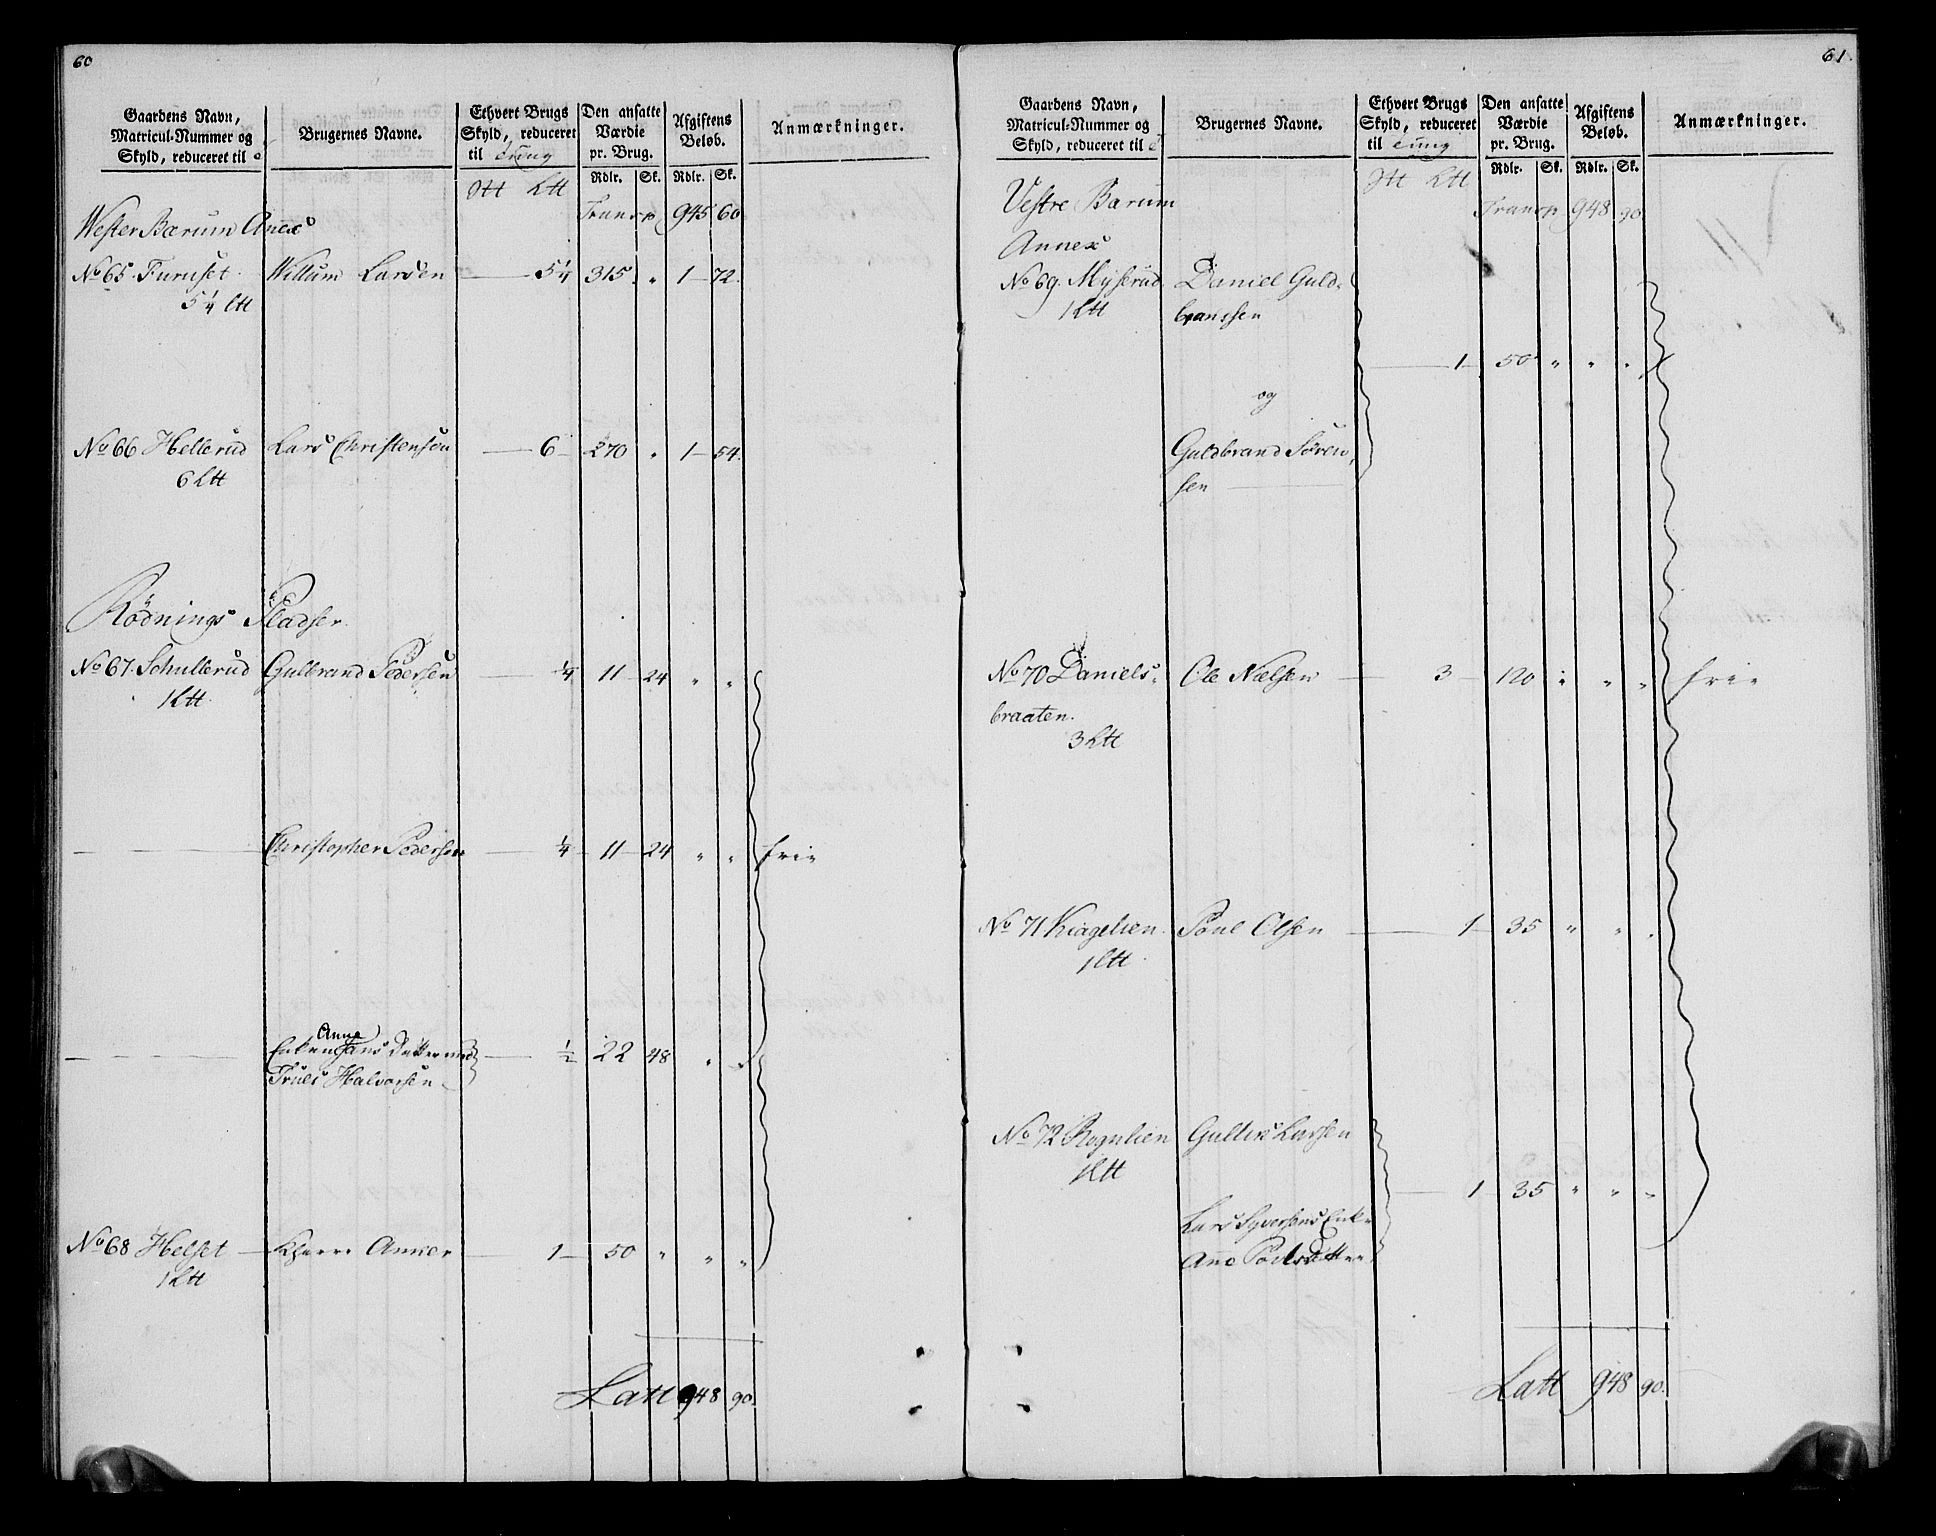 60
Gaardens Navn,
Matricul-Nummer og
Skyld, reduceret til
Brugernes Navne.
Ethvert Brugs
Skyld, reduceret
til Tung
Den ansatte
Værdie
pr. Brug.
Afgiftens
Beløb.
Anmærkninger.
Rdlr. Sk. Rdlr. Sk.
Transp 945 60
Wester Bærum Anex
No 65. Furuset. Willum Larsen — 5 1/4 315. " 1 — 72.
5 1/4 Ltt
No 66 Hellerud Lars Christensen — 6 — 270 " 1 — 54.
6 Ltt
Rödnings Pladser.
No 67. Schullerud Gulbrand Pedersen — 1/4 11 — 24 " "
1 Ltt.
Christopher Pedersen — 1/4 — 11 — 24 " " frie
Anne
Enken Hans Datter med — 1/2 22 48 " "
Truls Halvorsen
No 68 Helset — Kherre Anker — 1 — 50 " " "
1 Ltt
Latt 948 90.
61.
Gaardens Navn,
Matricul-Nummer og
Skyld, reduceret til
Brugernes Navne.
Ethvert Brugs
Skyld, reduceret
til Tung
Den ansatte
Værdie
pr. Brug.
Afgiftens
Beløb.
Anmærkninger.
Rdlr. Sk. Rdlr. Sk.
Transp 948 90
Vestre Bærum
Annex
No 69. Myserud Daniel Guld-
1 Ltt branssen
— 1 — 50 " " "
og
Guldbrand Sören-
sen
No 70 Daniels- Ole Nielsen — 3 — 120 " " " frie
braaten.
3 Ltt
No 71 Kiagelien. Poul Olsen — 1 — 35 " " "
1 Ltt.
No 72 Rognlien Gulless Larsen
1 Ltt
— 1 — 35 " " "
Lars Syversens Enke
Anne Povelsdatter
Latt 948 90.